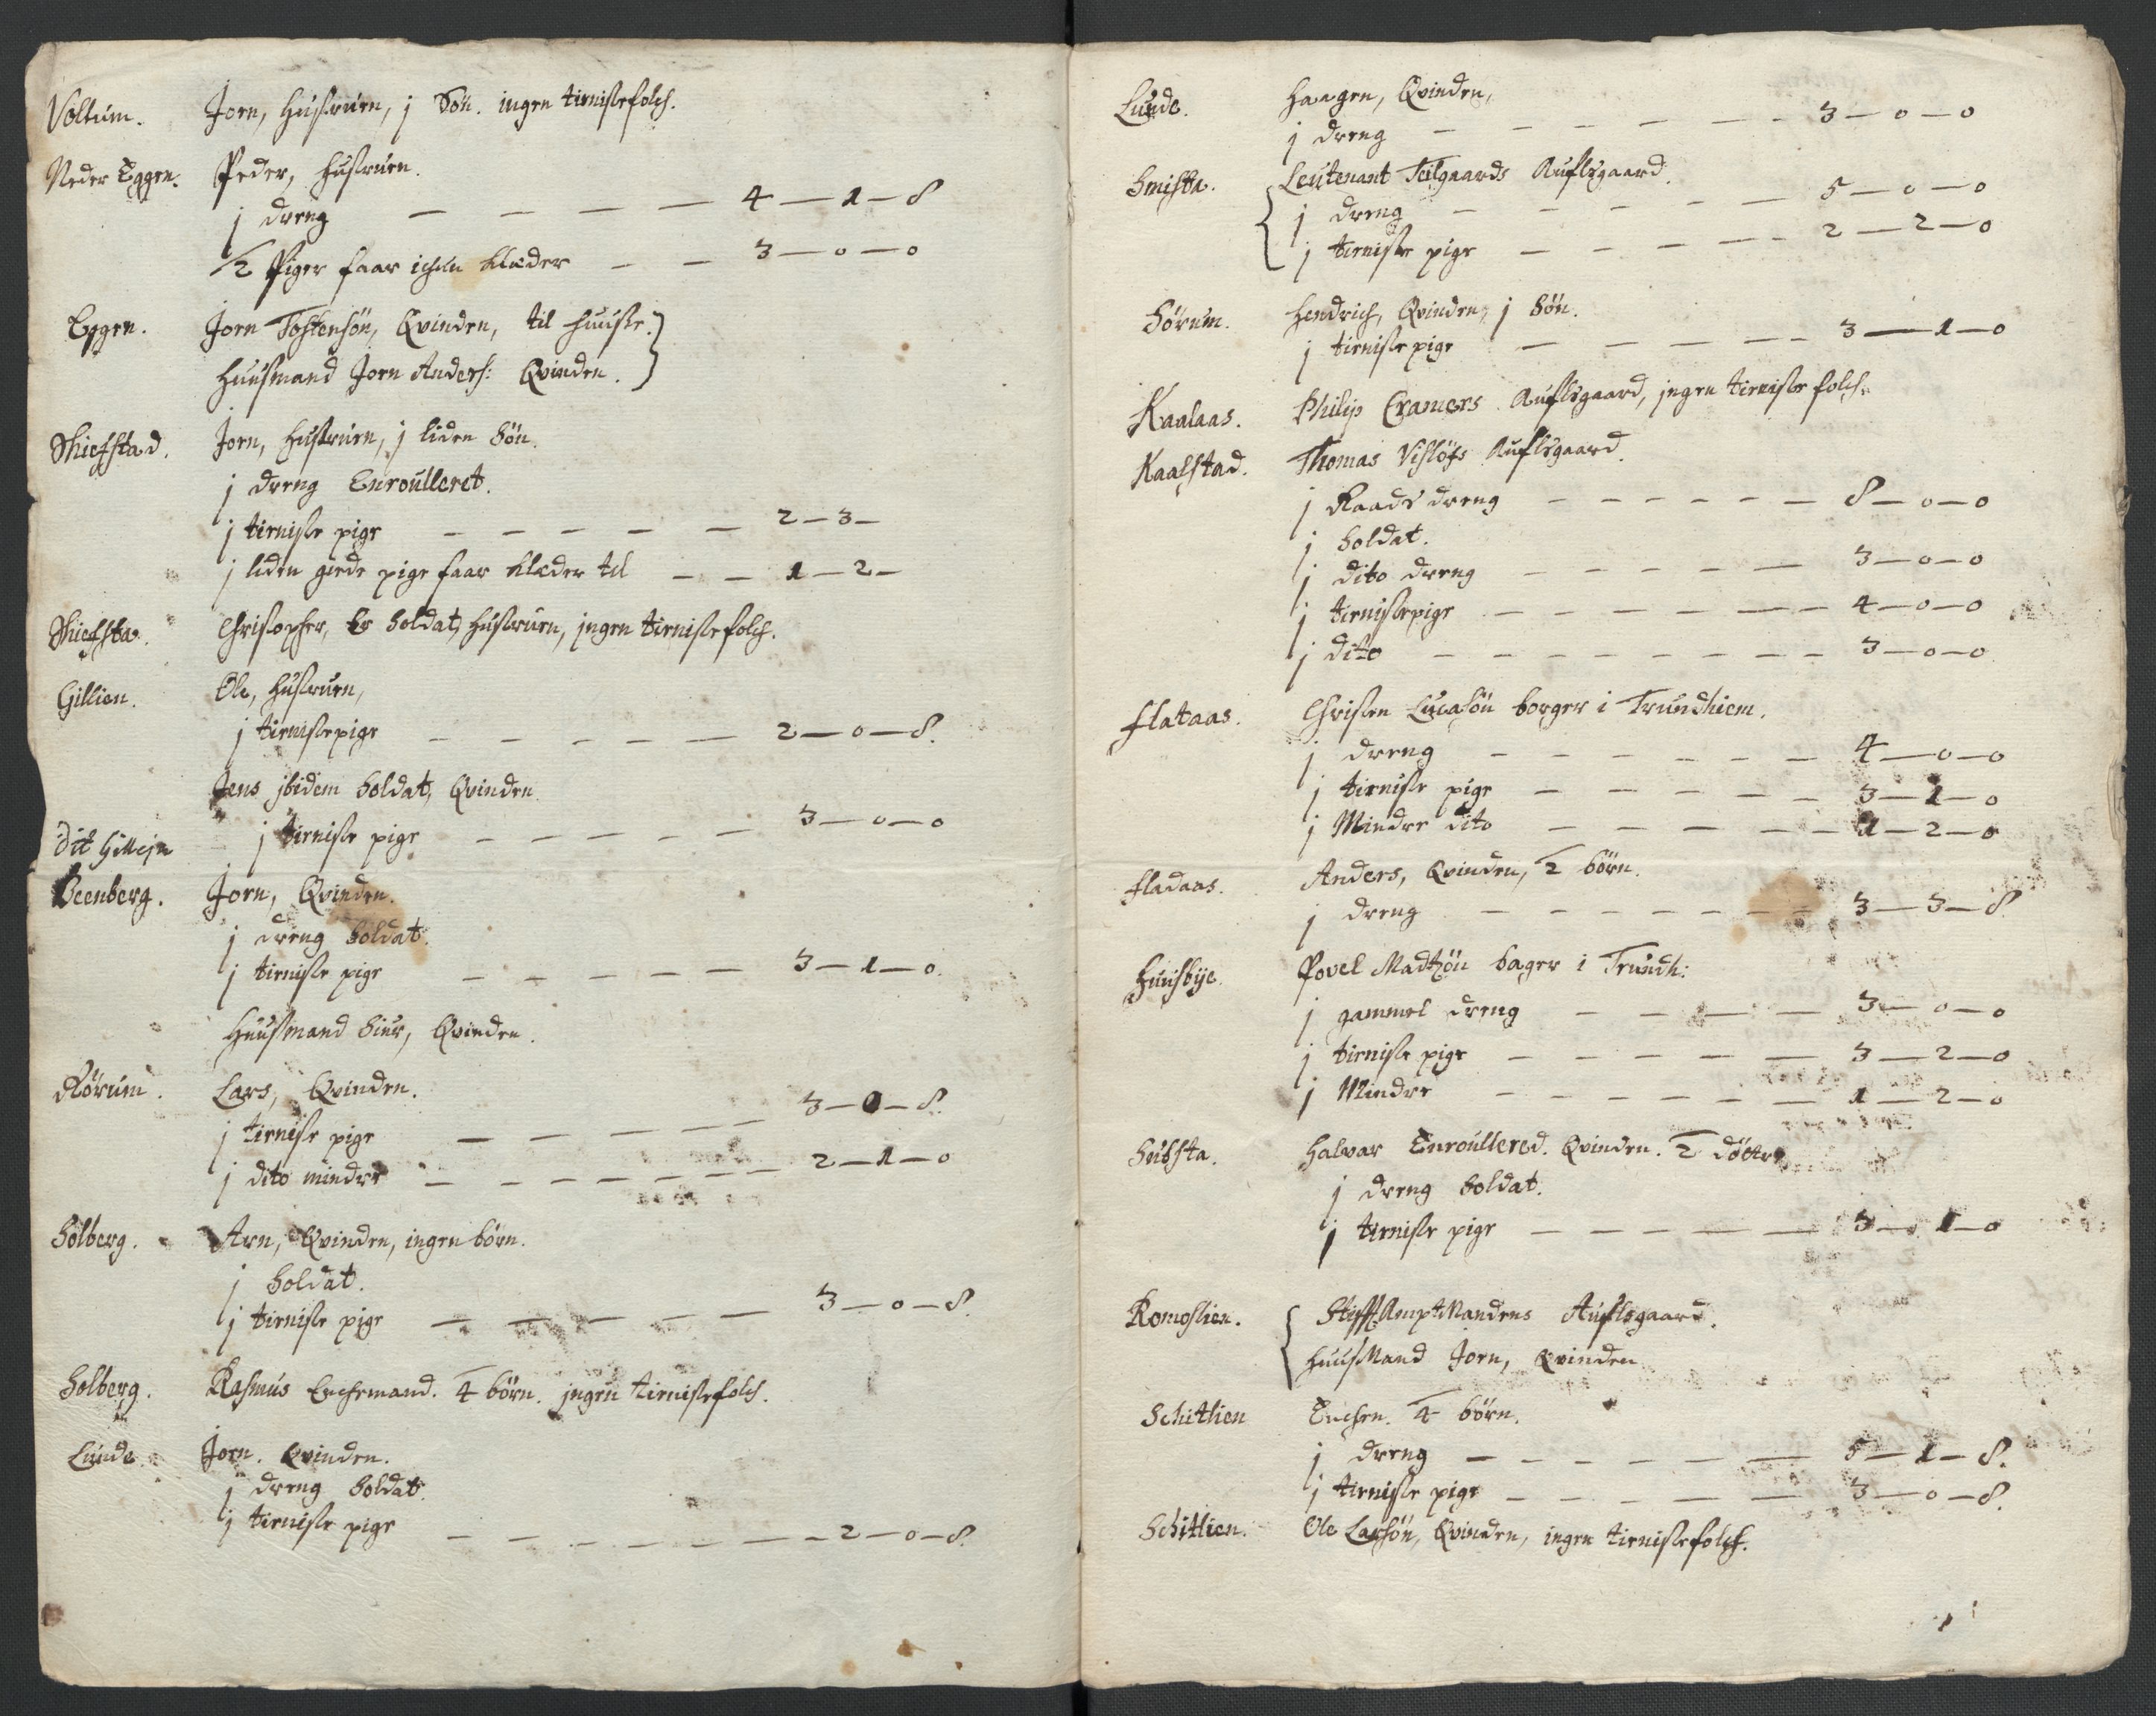 Voltum. Jorn, Hustruen, j Søn. ingen tienistefolch.
Neder Eggen. Peder, Hustruen.
j dreng — — — — 4 — 1 — 8
2 Piger faar ichen Klæder — — 3 — 0 — 0
Eggen. Jorn Tostensøn, Qvinden, til Huuse.
Huusmand Jorn Anders: Qvinden.
Skiefstad. Jorn, Hustruen, j liden Søn.
j dreng Enroulleret.
j tieniste pige — — — — — 2 — 3 —
j liden giede pige faar Klæder til — — 1 — 2 —
Skiefsta. Christopher, Er Soldat, Hustruen, jngen tienistefolch.
Gillien. Ole, Hustruen,
j tienistepige — — — — — 2 — 0 — 8.
Jens jbidem Soldat, Qvinden.
dit Hillejn j tieniste pige — — — — — 3 — 0 — 0
Beenberg. Jorn, Qvinden.
j dreng Soldat.
j tieniste pige — — — — — 3 — 1 — 0.
Huusmand Siur, Qvinden.
Rørum. Lars, Qvinden.
j tieniste pige — — — — — 3 — 0 — 8.
j dito mindre — — — — — — 2 — 1 — 0
Solberg. Arn, Qvinden, ingen børn.
j Soldat.
j tieniste pige — — — — — 3 — 0 — 8.
Solberg. Rasmus Enchemand. 4 børn. jngen tienistefolch.
Lunde. Jorn. Qvinden.
j dreng Soldat.
j tieniste pige — — — — — — — 2 — 0 — 8.
Lunde. Haagen, Qvinden,
j dreng — — — — — — 3 — 0 — 0
Smista. Leutenant Teilgaards Auflsgaard.
j dreng — — — — — — 5 — 0 — 0
j tieniste pige — — — — — 2 — 2 — 0
Sørum. Hendrich, Qvinden, j Søn.
j tieniste pige — — — — — 3 — 1 — 0
Kaalaas. Philip Cramers Auflsgaard, jngen tieniste folch.
Kaalstad. Thomas Visløfs Auflsgaard.
j Raads dreng — — — — — — 8 — 0 — 0
j Soldat.
j dito dreng — — — — — — 3 — 0 — 0
j tienistepige — — — — — — 4 — 0 — 0
j dito — — — — — — — — 3 — 0 — 0
Flataas. Christen Lucasøn borger i Trundhiem.
j dreng — — — — — — 4 — 0 — 0
j tieniste pige — — — — — 3 — 1 — 0
j Mindre dito — — — — — 1 — 2 — 0
Fladaas. Anders, Qvinden, 2 børn.
j dreng — — — — — — — 3 — 3 — 8.
Huusbye. Povel Madtzøn bager i Trundh:
j gammel dreng — — — — 3 — 0 — 0
j tieniste pige — — — — — 3 — 2 — 0
j Mindre — — — — — — 1 — 2 — 0
Huusta. Halvar Enroullered. Qvinden. 2 døttre
j dreng Soldat.
j tieniste pige — — — — — 3 — 1 — 0
Romoslien. Stifft AmptMandens Auflsgaard.
HuusMand Jorn, Qvinden
Schitlien Enchen. 4 børn.
j dreng — — — — — — 5 — 1 — 8.
j tieniste pige — — — — — 3 — 0 — 8.
Schitlien. Ole Larsøn, Qvinden, ingen tienistefolch.